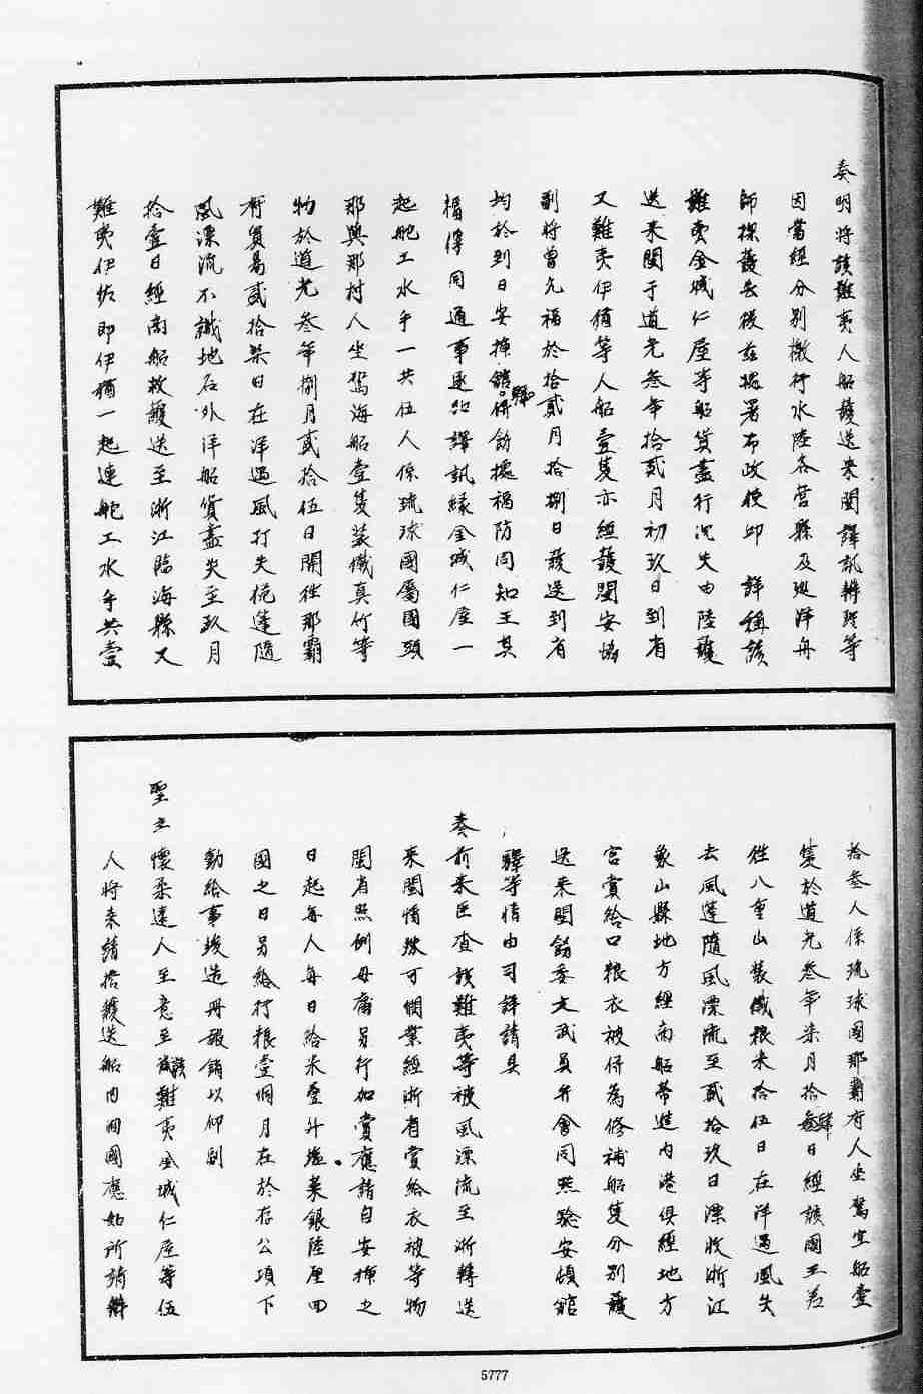 奏明將該難夷人船護送來閩譯訊辦理等
因當經分別檄行水陸各營縣及巡洋舟
師探護去後茲據署布政使邱 詳稱該
難夷金城仁屋等船貨盡行沉失由陸護
送來閩于道光叁年拾貳月初玖日到省
又難夷伊稍等人船壹隻亦經護閩安協
副將曾允福於拾貳月拾捌日護送到省
均於到日安揷館驛併飭據福防同知王其
福傳同通事逐加譯訊緣金城仁屋一
起舵工水手一共伍人係琉球國屬國頭
那與那村人坐駕海船壹隻裝儎真竹等
物於道光叁年捌月貳拾伍日開往那霸
府貿易貳拾柒日在洋遇風打失桅蓬隨
風漂流不識地名外洋船貨盡失至玖月
拾壹日經商船救護送至浙江臨海縣又
難夷伊佐即伊稍一起連舵工水手共壹
拾叁人係琉球國那霸府人坐駕官船壹
隻於道光叁年柒月拾肆日經該國王差
往八重山裝儎粮米拾伍日在洋遇風失
去風蓬隨風漂流至貳拾玖日漂收浙江
象山縣地方經商船帶進內港俱經地方
官賞給口粮衣被併為修補船隻分別護
送來閩飭委文武員弁會同照騐安頓館
驛等情由司詳請具
奏前來臣查該難夷等被風漂流至浙轉送
來閩情殊可憫業經浙省賞給衣被等物
閩省照例毋庸另行加賞應請自安揷之
日起每人每日給米壹升塩菜銀陸厘回
國之日另給行粮壹個月在於存公項下
動給事竣造冊報銷以仰副
聖主懷柔遠人至意至該難夷金城仁屋等伍
人將來請搭護送船內回國應如所請辦